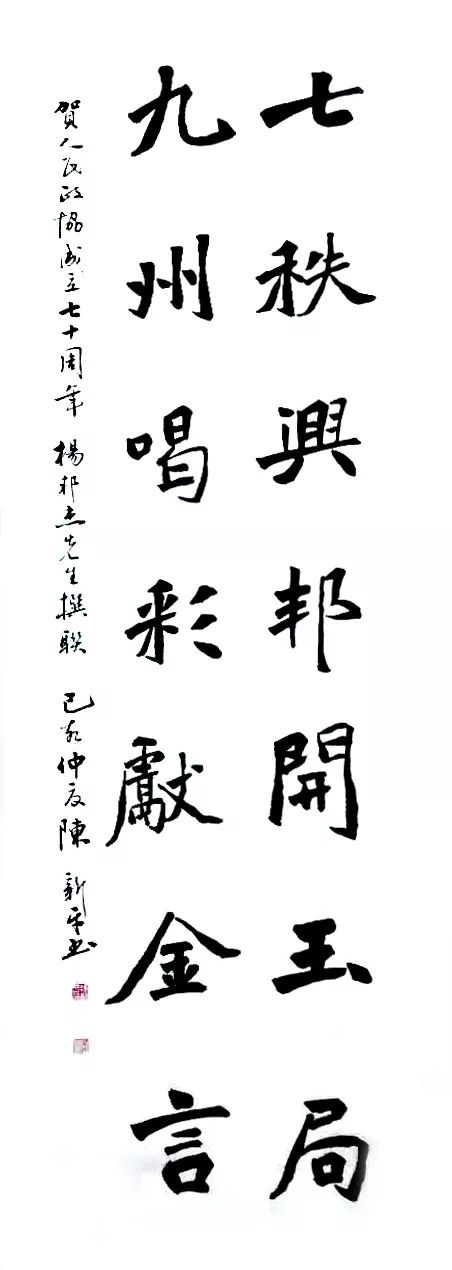 七秩興邦開玉局
九州唱彩獻金言
賀人民政協成立七十周年 楊邦杰先生撰聯 己亥仲夏陳新平书